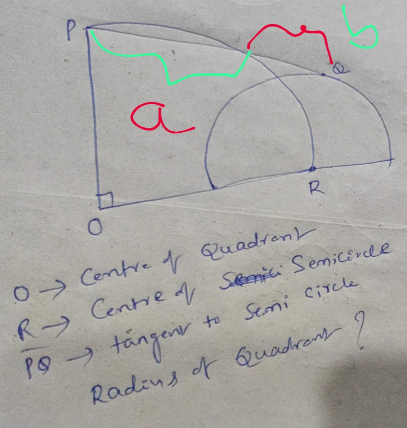 P
b
Q
a
R
O
O → Centre of Quadrant
R → Centre of Semicircle
PQ → tangent to Semi circle
Radius of Quadrant ?